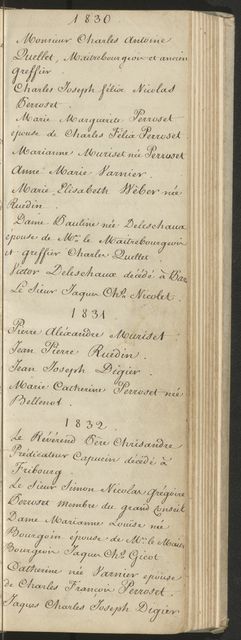 1830
Monsieur Charles Antoine
Quellet, Maitrebourgeois et ancien
greffier.
Charles Joseph félix Nicolas
Perroset.
Marie Marguerite Perroset
épouse de Charles Félix Perroset
Marianne Muriset née Perroset
Anne Marie Varnier.
Marie Elisabeth Wéber née
Ruédin.
Dame Pauline née Deleschaux
épouse de Mr. le Maitrebourgeois
et greffier Charles Quellet.
Victor Deleschaux décédé à
Le Sieur Jaques Chs. Nicolet.
1831
Pierre Aléxandre Muriset
Jean Pierre Ruédin.
Jean Joseph Digier.
Marie Catherine Perroset née
Bellenot.
1832.
Le Révérend Père Chrisandre
Prédicateur Capucin décédé à
Fribourg.
Le Sieur Simon Nicolas grégoire
Perroset membre du grand Conseil
Dame Marianne Louise née
Bourgoin épouse de Mr. le Maitre
Bourgeois Jaques Chs. Gicot
Catherine née Varnier épouse
de Charles François Perroset.
Jaques Charles Joseph Digier